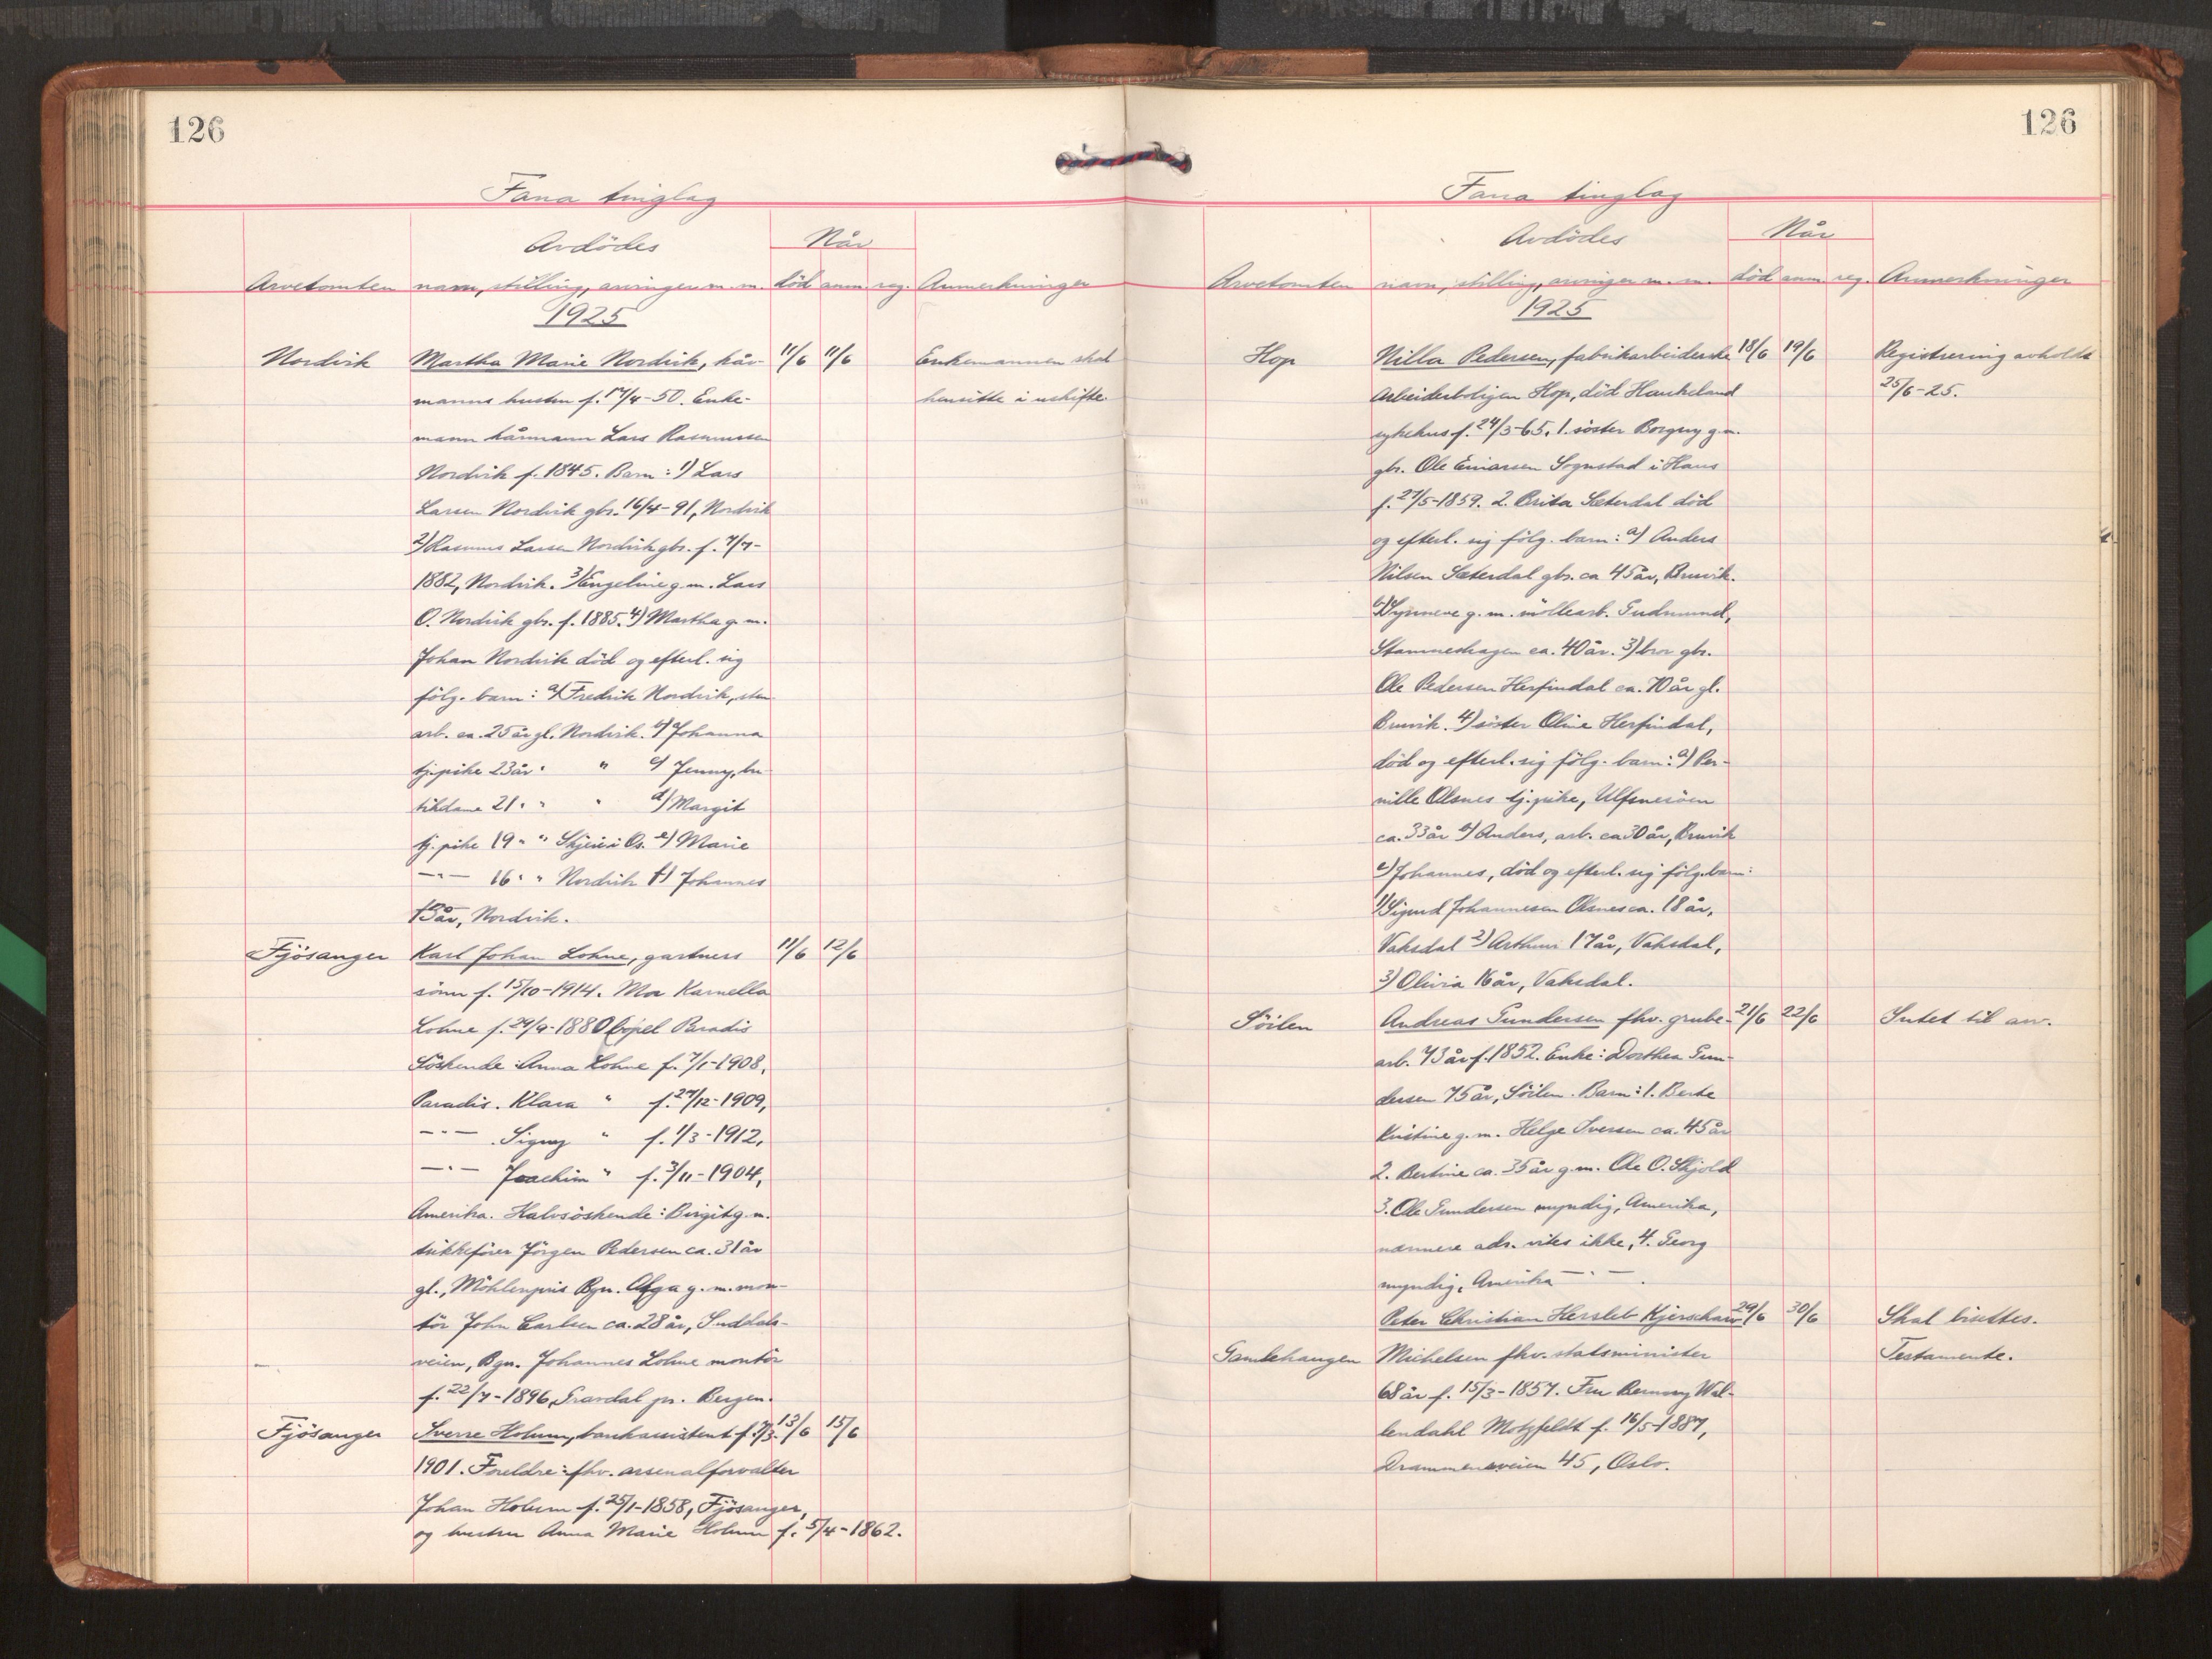 126
Fana tinglag
Avdödes
Når
Arvetomten navn, stilling, arvinger m. m. död anm. reg. Anmerkninger
1925
Nordvik Martha Marie Nordvik, kår- 11/6 11/6 Enkemannen skal
manns hustru f. 17/4-50. Enke- hensitte i uskifte.
mann kårmann Lars Rasmussen
Nordvik f. 1845. Barn: 1) Lars
Larsen Nordvik gbr. 16/4-91, Nordvik
2) Rasmus Larsen Nordvik gbr. f. 7/7-
1882, Nordvik. 3) Engeline g.m. Lars
O. Nordvik gbr. f. 1885. 4) Martha g.m.
Johan Nordvik död og efterl. sig
fölg. barn: a) Fredrik Nordvik, sten
arb. ca. 25 år gl. Nordvik. b) Johanna
tj.pike 23 år " " c) Jenny, bu-
tikdame 21 " " " d) Margit
tj. pike 19 " " Skjeie i Os. e) Marie
—"— 16 " " Nordvik f) Johannes
13 år, Nordvik.
Fjösanger Karl Johan Lohne, gartners 11/6 12/6
sönn f. 15/10-1914. Mor Karnella
Lohne f. 29/9-1880 Paradis
Söskende: Anna Lohne f. 7/1-1908,
Paradis. Klara " f. 27/12-1909,
—"— . Signy " f. 1/3-1912,
—"— Joachim " f. 3/11-1904,
Amerika. Halvsöskende: Birgit g.m.
trikkeförer Jörgen Pedersen ca. 31 år
gl., Möhlenpris Bgn. Olga g.m. mon-
tör John Carlsen ca. 28 år,
veien, Bgn. Johannes Lohne montör
f. 22/7-1896, Gravdal pr. Bergen.
Fjösanger Sverre Holum, bankassistent f. 7/3 13/6 15/6
1901. Foreldre: fhv. arsenalforvalter
Johan Holum f. 25/1-1858, Fjösanger,
og hustru Anna Marie Holum f. 5/4-1862.
126
Fana tinglag
Avdödes
Når
Arvetomten navn, stilling, arvinger m. m. död anm. reg. Anmerkninger
1925
Hop Nilla Pedersen, fabrikarbeiderske 18/6 19/6 Registrering avholdt
Arbeiderboligen Hop, död Haukeland 25/6-25.
sykehus f. 24/3-65. 1. söster Borgny g.m.
gbr. Ole Einarsen Sognstad i Haus
f. 27/5-1859. 2. Brita Sæterdal död
og efterl. sig fölg. barn: a) Anders
Nilsen Sæterdal gbr. ca 45 år, Bruvik.
b) Synneve g.m. möllearb. Gudmund,
Stamneshagen ca. 40 år. 3) bror gbr.
Ole Pedersen Herfindal ca. 70 år gl.
Bruvik. 4) söster Oline Herfindal,
död og efterl. sig fölg. barn: a) Per-
nille Olsnes tj.pike, Ulfsnesöen
ca. 33 år b) Anders, arb. ca 30 år, Bruvik
c) Johannes, död og efterl. sig fölg. barn:
1) Sigurd Johannesen Olsnes ca. 18 år,
Vaksdal 2) Arthur 17 år, Vaksdal,
3) Olivia 16 år, Vaksdal.
Söilen Andreas Gundersen fhv. grube- 21/6 22/6 Intet til arv.
arb. 73 år f. 1852. Enke: Dorthea Gun-
dersen 75 år, Söilen. Barn: 1. Berte
Kristine g.m. Helge Iversen ca. 45 år
2. Bertine ca. 35 år g.m. Ole O. Skjold
3. Ole Gundersen myndig, Amerika,
nærmere adr. vites ikke, 4. Georg
myndig, Amerika —"— .
Peter Christian Hersleb Kjerschow 29/6 30/6 Skal bisettes.
Gamlehaugen Michelsen fhv. statsminister Testamente.
68 år f. 15/3-1857. Fru Benny Wal-
lendahl Motzfeldt f. 16/5-1887,
Drammensveien 45, Oslo.